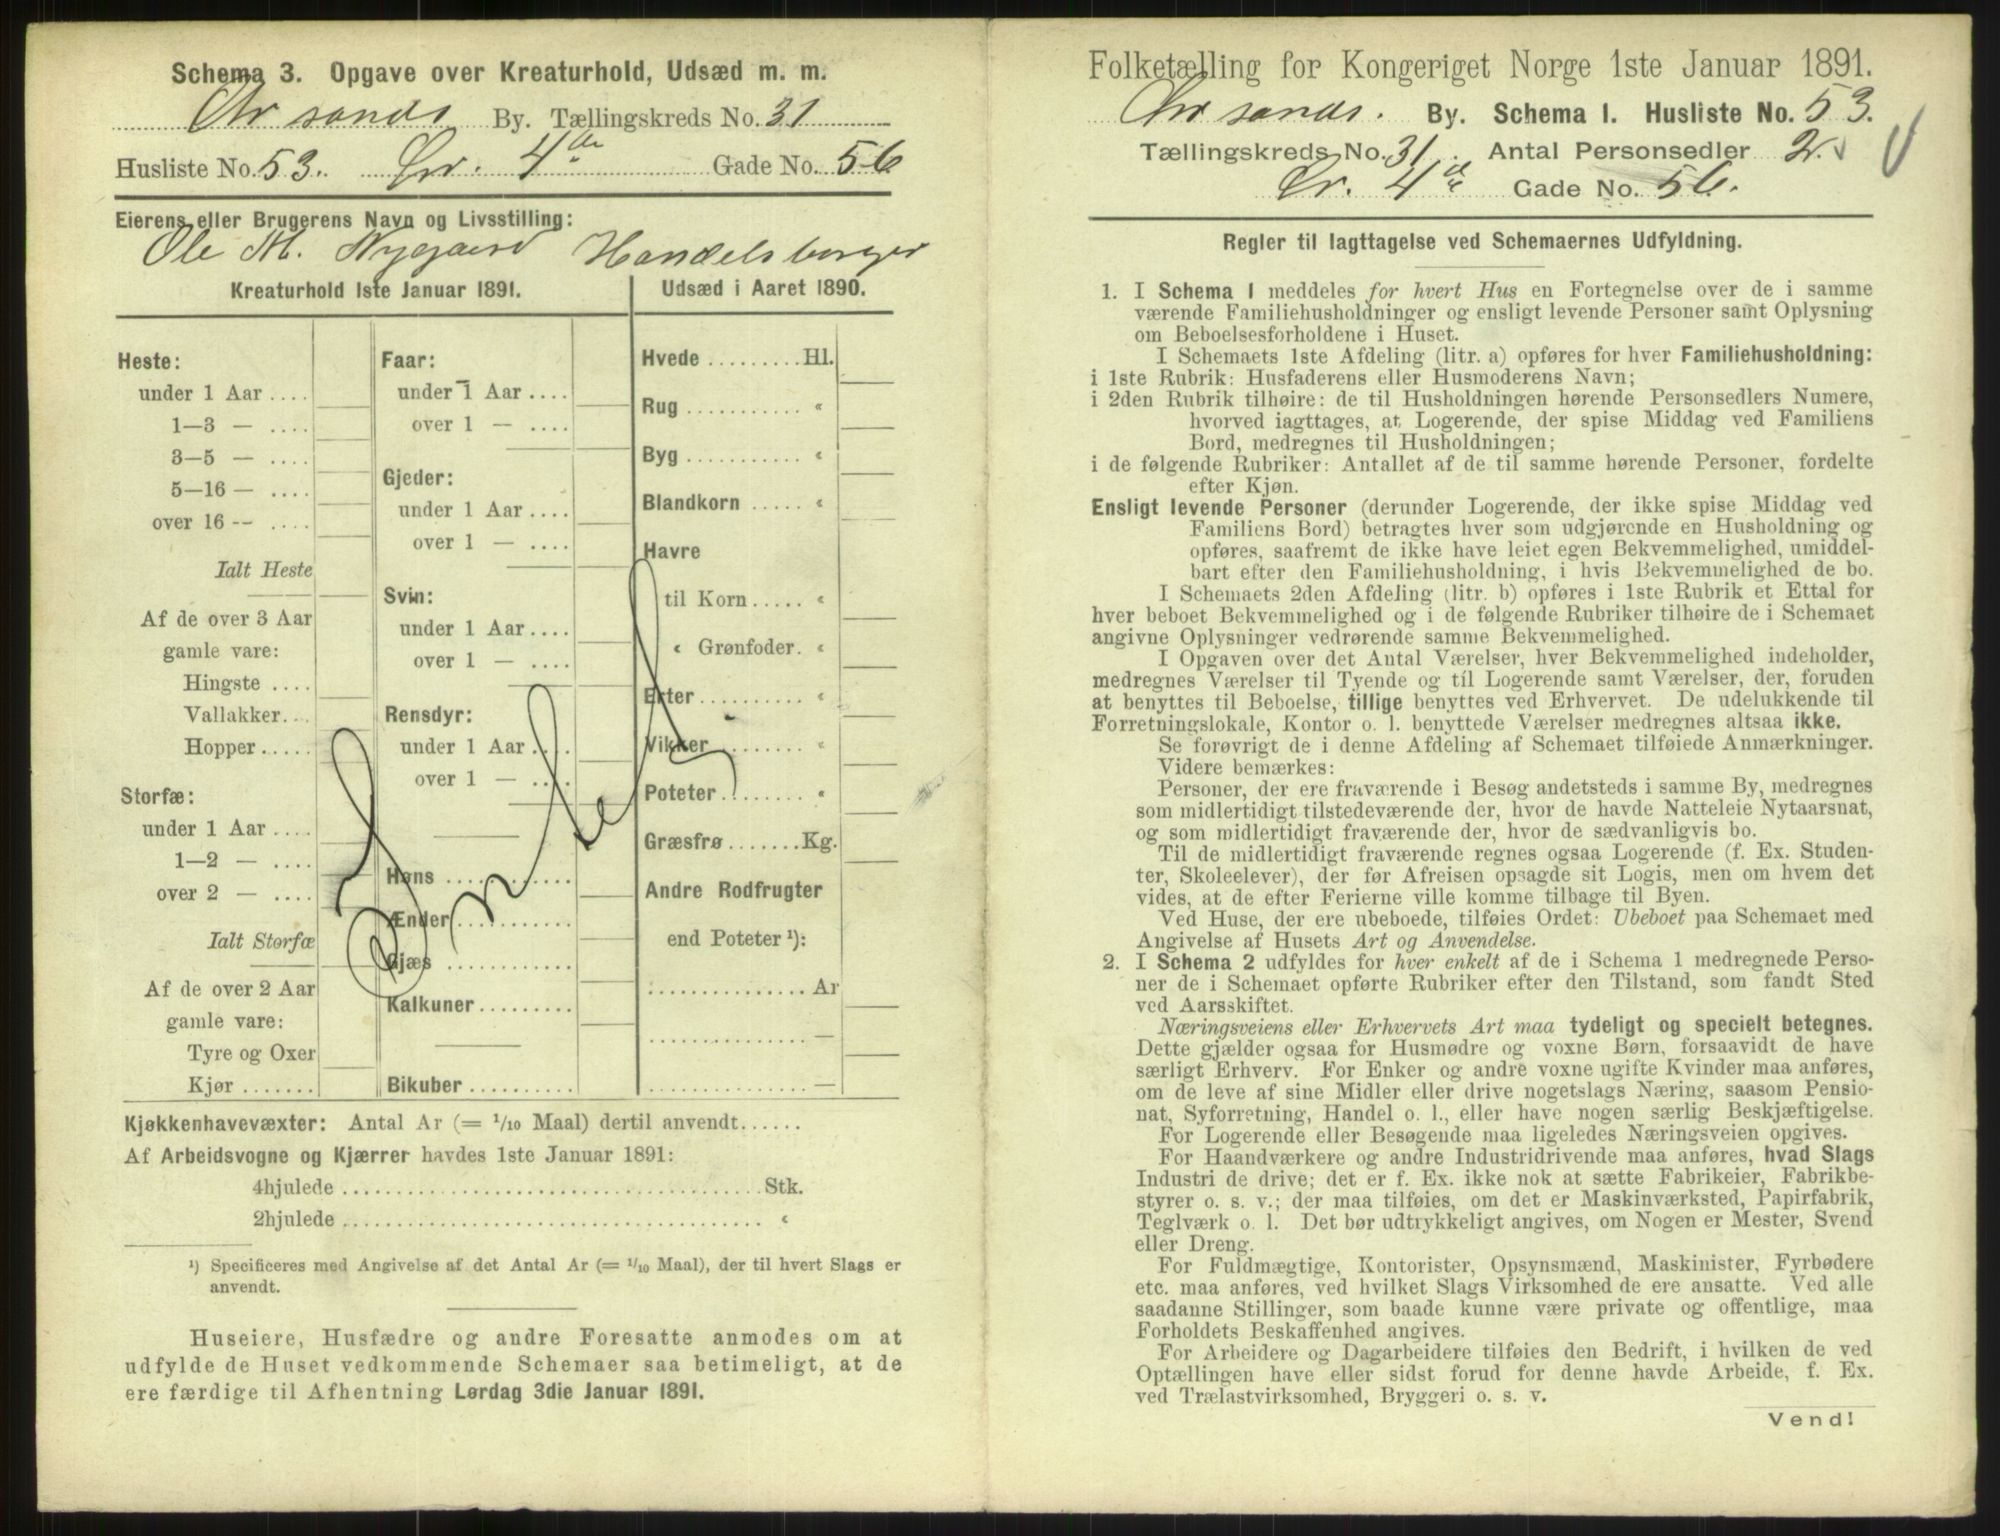 Schema 3. Opgave over Kreaturhold, Udsæd m. m.
Chr sands By. Tællingskreds No. 31
Husliste No. 53. Dr. 4de Gade No. 56
Eierens eller Brugerens Navn og Livsstilling:
Ole M. Nygaard Handelsborger
Kreaturhold 1ste Januar 1891.
Heste:
under 1 Aar ....
1—3 — ....
3—5 — ....
5—16 — ....
over 16 -- ....
Ialt Heste
Af de over 3 Aar
gamle vare:
Hingste ....
Vallakker...
Hopper.....
Storfæ:
under 1 Aar ....
1—2 — ....
over 2 — ....
Ialt Storfæ
Af de over 2 Aar
gamle vare:
Tyre og Oxer
Kjør.......
Faar:
under 1 Aar ....
over 1 — ....
Gjeder:
under 1 Aar ....
over 1 — ....
Svin:
under 1 Aar ....
over 1 — ....
Rensdyr:
under 1 Aar ....
over 1 — ....
Høns ............
Ænder...........
Gjæs ............
Kalkuner.........
Bikuber..........
Udsæd i Aaret 1890.
Hvede .........Hl.
Rug ........... «
Byg ........... «
Blandkorn ..... «
Havre
til Korn..... «
« Grønfoder. «
Erter.......... «
Vikker......... «
Poteter........ «
Græsfrø.......Kg.
Andre Rodfrugter
end Poteter ¹):
...............Ar
............... —
............... —
Kjøkkenhavevæxter: Antal Ar (= 1/10 Maal) dertil anvendt......
Af Arbeidsvogne og Kjærrer havdes 1ste Januar 1891:
4hjulede ........................................Stk.
2hjulede ........................................ «
¹) Specificeres med Angivelse af det Antal Ar (= 1/10 Maal), der til hvert Slags er
anvendt.
Huseiere, Husfædre og andre Foresatte anmodes om at
udfylde de Huset vedkommende Schemaer saa betimeligt, at de
ere færdige til Afhentning Lørdag 3die Januar 1891.
Folketælling for Kongeriget Norge 1ste Januar 1891.
Chr sands. By. Schema I. Husliste No. 53.
Tællingskreds No. 31. Antal Personsedler 2.
Dr. 4de Gade No. 56.
Regler til Iagttagelse ved Schemaernes Udfyldning.
1. I Schema I meddeles for hvert Hus en Fortegnelse over de i samme
værende Familiehusholdninger og ensligt levende Personer samt Oplysning
om Beboelsesforholdene i Huset.
I Schemaets 1ste Afdeling (litr. a) opføres for hver Familiehusholdning:
i 1ste Rubrik: Husfaderens eller Husmoderens Navn;
i 2den Rubrik tilhøire: de til Husholdningen hørende Personsedlers Numere,
hvorved iagttages, at Logerende, der spise Middag ved Familiens
Bord, medregnes til Husholdningen;
i de følgende Rubriker: Antallet af de til samme hørende Personer, fordelte
efter Kjøn.
Ensligt levende Personer (derunder Logerende, der ikke spise Middag ved
Familiens Bord) betragtes hver som udgjørende en Husholdning og
opføres, saafremt de ikke have leiet egen Bekvemmelighed, umiddel-
bart efter den Familiehusholdning, i hvis Bekvemmelighed de bo.
I Schemaets 2den Afdeling (litr. b) opføres i 1ste Rubrik et Ettal for
hver beboet Bekvemmelighed og i de følgende Rubriker tilhøire de i Schemaet
angivne Oplysninger vedrørende samme Bekvemmelighed.
I Opgaven over det Antal Værelser, hver Bekvemmelighed indeholder,
medregnes Værelser til Tyende og til Logerende samt Værelser, der, foruden
at benyttes til Beboelse, tillige benyttes ved Erhvervet. De udelukkende til
Forretningslokale, Kontor o. l. benyttede Værelser medregnes altsaa ikke.
Se forøvrigt de i denne Afdeling af Schemaet tilføiede Anmærkninger.
Videre bemærkes:
Personer, der ere fraværende i Besøg andetsteds i samme By, medregnes
som midlertidigt tilstedeværende der, hvor de havde Natteleie Nytaarsnat,
og som midlertidigt fraværende der, hvor de sædvanligvis bo.
Til de midlertidigt fraværende regnes ogsaa Logerende (f. Ex. Studen-
ter, Skoleelever), der før Afreisen opsagde sit Logis, men om hvem det
vides, at de efter Ferierne ville komme tilbage til Byen.
Ved Huse, der ere ubeboede, tilføies Ordet: Ubeboet paa Schemaet med
Angivelse af Husets Art og Anvendelse.
2. I Schema 2 udfyldes for hver enkelt af de i Schema 1 medregnede Perso-
ner de i Schemaet opførte Rubriker efter den Tilstand, som fandt Sted
ved Aarsskiftet.
Næringsveiens eller Erhvervets Art maa tydeligt og specielt betegnes.
Dette gjælder ogsaa for Husmødre og voxne Børn, forsaavidt de have
særligt Erhverv. For Enker og andre voxne ugifte Kvinder maa anføres,
om de leve af sine Midler eller drive nogetslags Næring, saasom Pensio-
nat, Syforretning, Handel o. l., eller have nogen særlig Beskjæftigelse.
For Logerende eller Besøgende maa ligeledes Næringsveien opgives.
For Haandværkere og andre Industridrivende maa anføres, hvad Slags
Industri de drive; det er f. Ex. ikke nok at sætte Fabrikeier, Fabrikbe-
styrer o. s. v.; der maa tilføies, om det er Maskinværksted, Papirfabrik,
Teglværk o. l. Det bør udtrykkeligt angives, om Nogen er Mester, Svend
eller Dreng.
For Fuldmægtige, Kontorister, Opsynsmænd, Maskinister, Fyrbødere
etc. maa anføres, ved hvilket Slags Virksomhed de ere ansatte. Ved alle
saadanne Stillinger, som baade kunne være private og offentlige, maa
Forholdets Beskaffenhed angives.
For Arbeidere og Dagarbeidere tilføies den Bedrift, i hvilken de ved
Optællingen have eller sidst forud for denne havde Arbeide, f. Ex.
ved Trælastvirksomhed, Bryggeri o. s. v.
Vend!